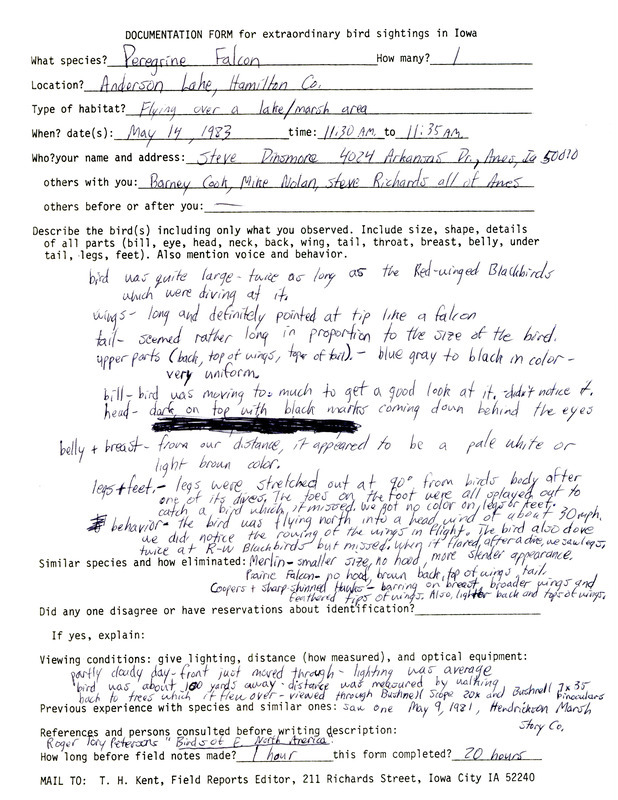 DOCUMENTATION FORM for extraordinary bird sightings in Iowa
What species? Peregrine Falcon How many? 1
Location? Anderson Lake, Hamilton Co.
Type of habitat? Flying over a lake/marsh area
When? date(s): May 14, 1983 time: 11:30 AM. to 11:35 AM.
Who?your name and address: Steve Dinsmore 4024 Arkansas Dr., Ames, Ia 50010
others with you: Barney Cook, Mike Nolan, Steve Richards all of Ames
others before or after you: —
Describe the bird(s) including only what you observed. Include size, shape, details
of all parts (bill, eye, head, neck, back, wing, tail, throat, breast, belly, under
tail, legs, feet). Also mention voice and behavior.
bird was quite large - twice as long as the Red-winged Blackbirds
which were diving at it.
wings - long and definitely pointed at tip like a falcon
tail - seemed rather long in proportion to the size of the bird.
upper parts (back, top of wings, top of tail). - blue gray to black in color -
very uniform.
bill - bird was moving too much to get a good look at it. didn't notice it.
head - dark on top with black marks coming down behind the eyes
belly + breast - from our distance, it appeared to be a pale white or
light brown color.
legs + feet. - legs were stretched out at 90° from birds body after
one of its dives. The toes on the foot were all splayed out to
catch a bird which it missed. We got no color on legs or feet.
behavior - the bird was flying north into a head wind of about 30 mph,
we did notice the rowing of the wings in flight. The bird also dove
twice at R-W Blackbirds but missed. When it flared, after a dive, we saw legs.
Similar species and how eliminated: Merlin - smaller size, no hood, more slender appearance.
Pairie Falcon - no hood, brown back, top of wings, tail.
Coopers + sharp-shinned hawks - barring on breast, broader wings and
feathered tips of wings. Also, lighter back and tops of wings.
Did any one disagree or have reservations about identification?
If yes, explain:
Viewing conditions: give lighting, distance (how measured), and optical equipment:
partly cloudy day - front just moved through - lighting was average
bird was about 100 yards away - distance was measured by walking
back to trees which it flew over - viewed through Bushnell Scope 20x and Bushnell 7x35 binoculars
Previous experience with species and similar ones: saw one May 9, 1981, Hendrickson Marsh
Story Co,
References and persons consulted before writing description:
Roger Tory Petersons "Birds of E. North America".
How long before field notes made? 1 hour this form completed? 20 hours
MAIL TO: T. H. Kent, Field Reports Editor, 211 Richards Street, Iowa City IA 52240